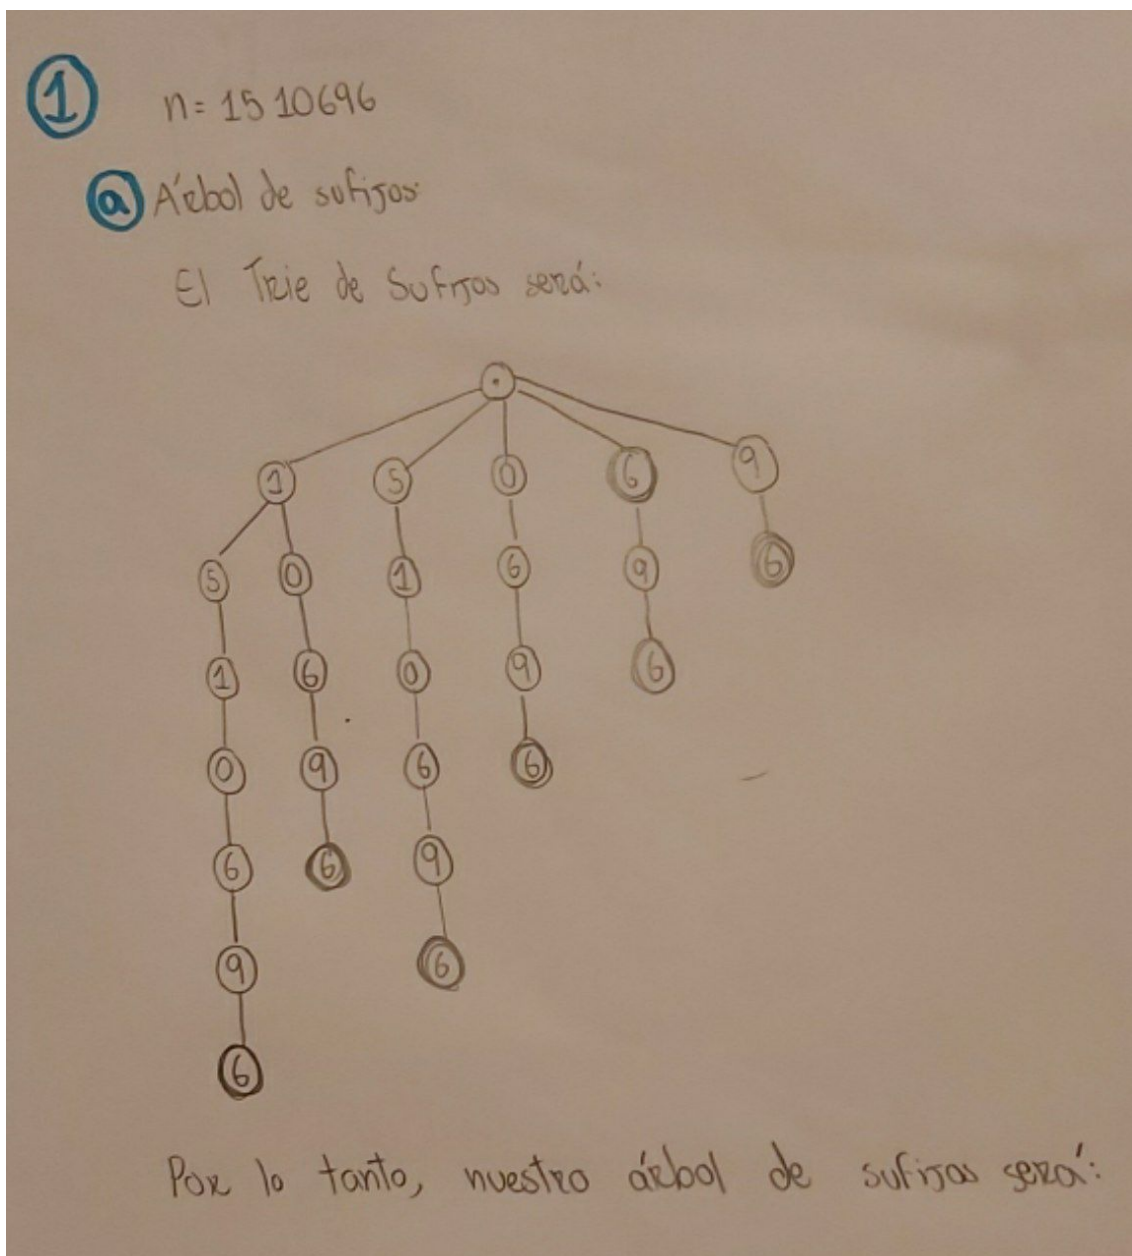 1 n = 1510696
a Árbol de sufijos:
El Trie de Sufijos será:
.
1 5 0 6 9
5 0 1 6 9 6
1 6 0 9 6
0 9 6 6
6 6 9
9 6
6
Por lo tanto, nuestro árbol de sufijos será: